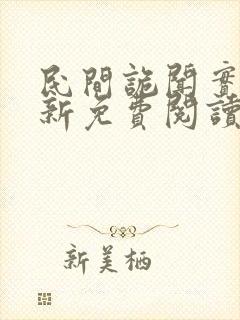 民間詭聞實
新免費閱讀
新美栖